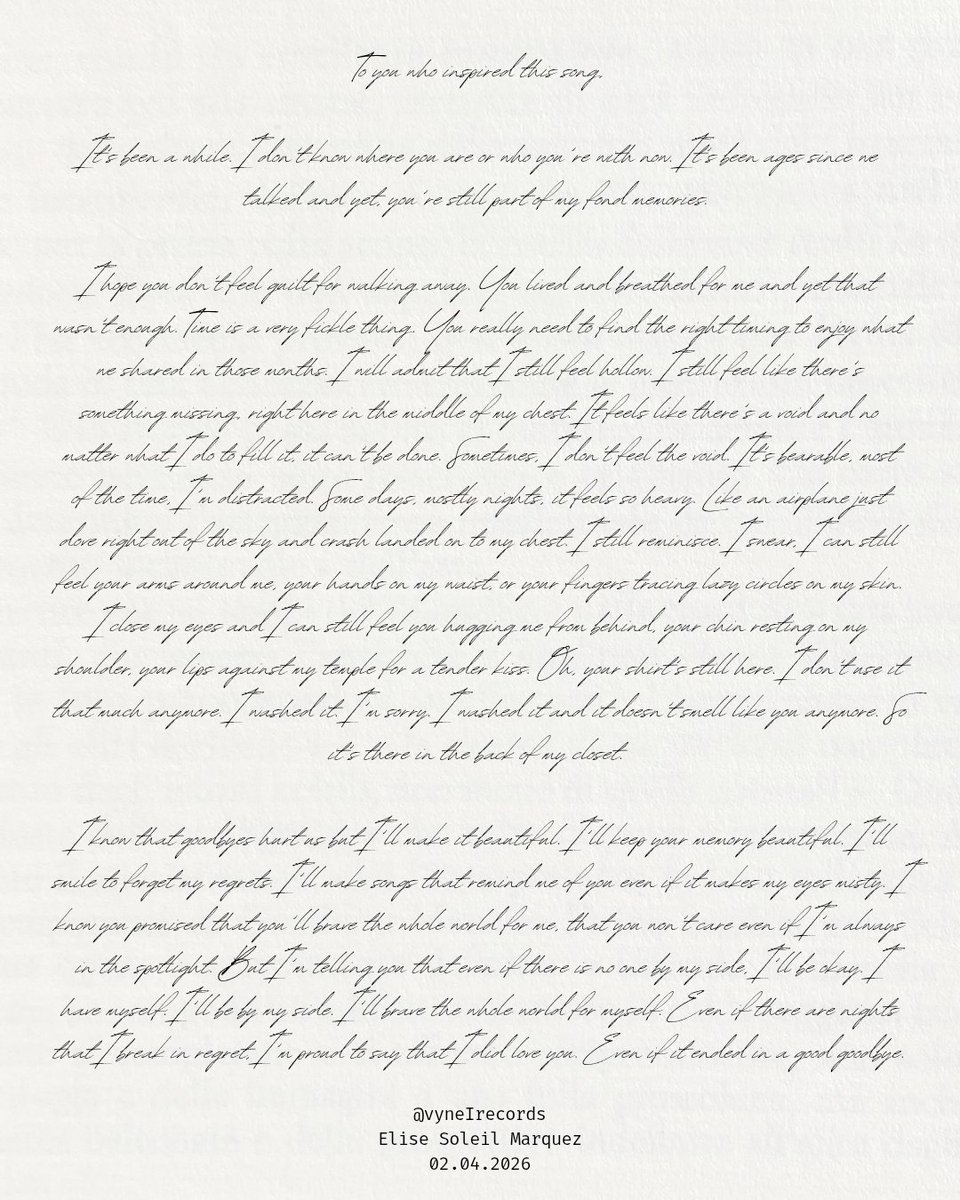 To you who inspired this song,
It's been a while. I don't know where you are or who you're with now. It's been ages since we
talked and yet, you're still part of my fond memories.
I hope you don't feel guilt for walking away. You lived and breathed for me and yet that
wasn't enough. Time is a very fickle thing. You really need to find the right timing to enjoy what
we shared in those months. I will admit that I still feel hollow. I still feel like there's
something missing, right here in the middle of my chest. It feels like there's a void and no
matter what I do to fill it, it can't be done. Sometimes, I don't feel the void. It's bearable, most
of the time, I'm distracted. Some days, mostly nights, it feels so heavy. Like an airplane just
dove right out of the sky and crash landed on to my chest. I still reminisce. I swear, I can still
feel your arms around me, your hands on my waist, or your fingers tracing lazy circles on my skin.
I close my eyes and I can still feel you hugging me from behind, your chin resting on my
shoulder, your lips against my temple for a tender kiss. Oh, your shirt's still here. I don't use it
that much anymore. I washed it. I'm sorry. I washed it and it doesn't smell like you anymore. So
it's there in the back of my closet.
I know that goodbyes hurt us but I'll make it beautiful. I'll keep your memory beautiful. I'll
smile to forget my regrets. I'll make songs that remind me of you even if it makes my eyes misty. I
know you promised that you'll brave the whole world for me, that you won't care even if I'm always
in the spotlight. But I'm telling you that even if there is no one by my side, I'll be okay. I
have myself. I'll be by my side. I'll brave the whole world for myself. Even if there are nights
that I break in regret, I'm proud to say that I did love you. Even if it ended in a good goodbye.
@vyneIrecords
Elise Soleil Marquez
02.04.2026